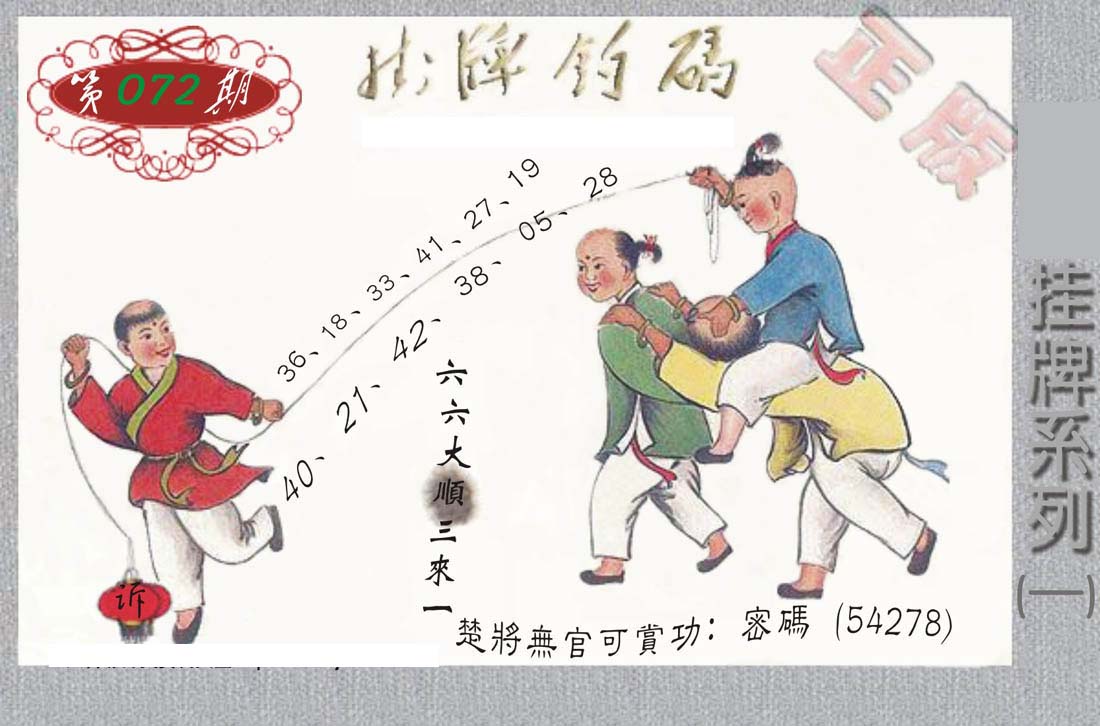 第072期
挂牌钓碼
正版
36、18、33、41、27、19
40、21、42、38、05、28
六六大順三來一
诉
楚將無官可賞功：密碼（54278）
挂牌系列(一)